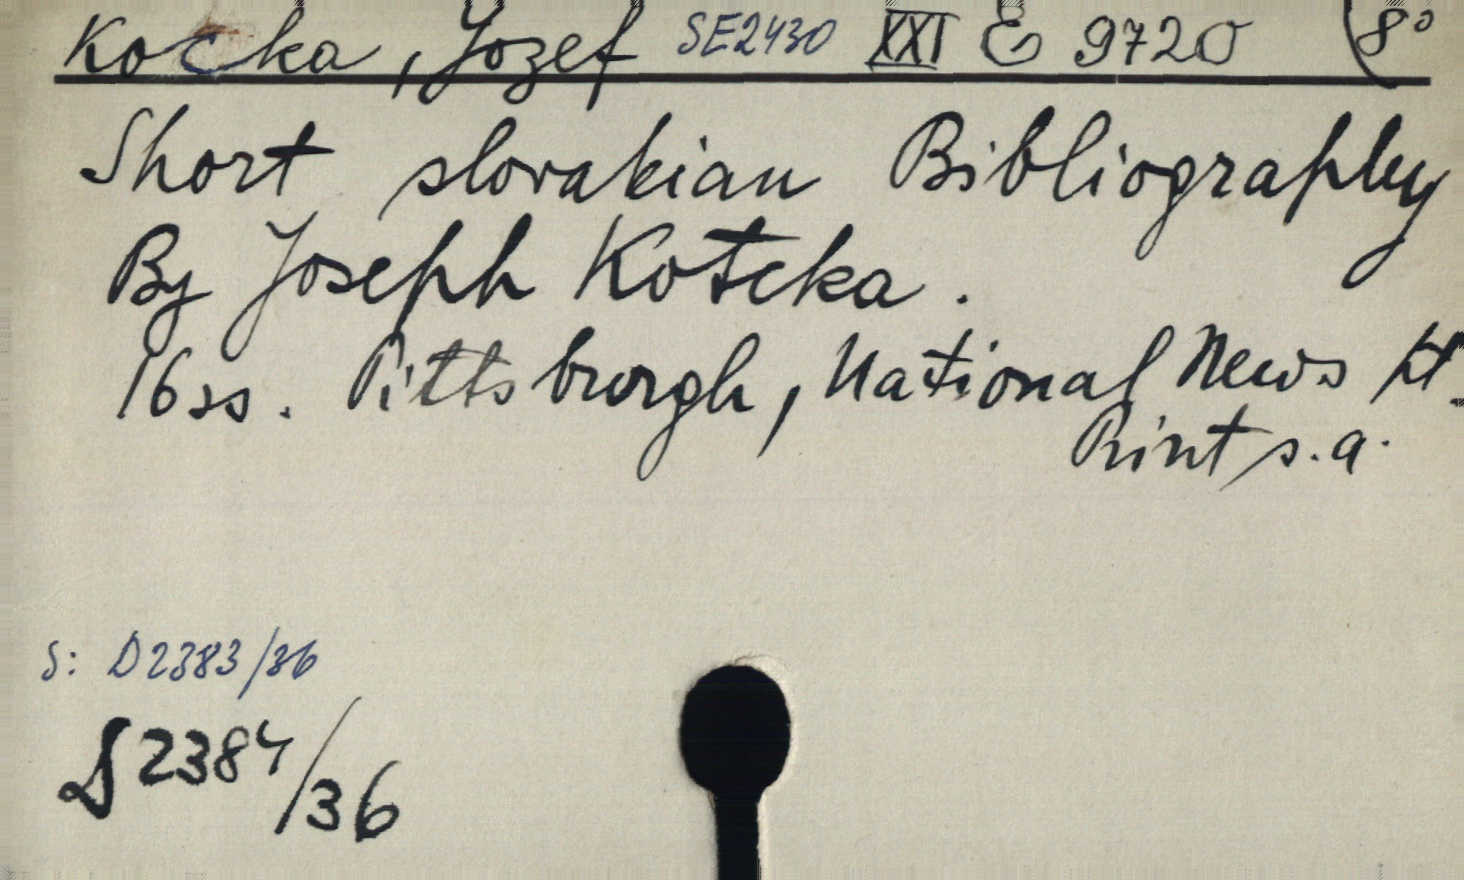 Kocka, Jozef SE2430 XXI E 9720 (8°
Short slovakian Bibliography
By Joseph Kotcka.
16 ss. Pittsburgh, National News
Print s.a.
S: D2383/36
D 2384/36